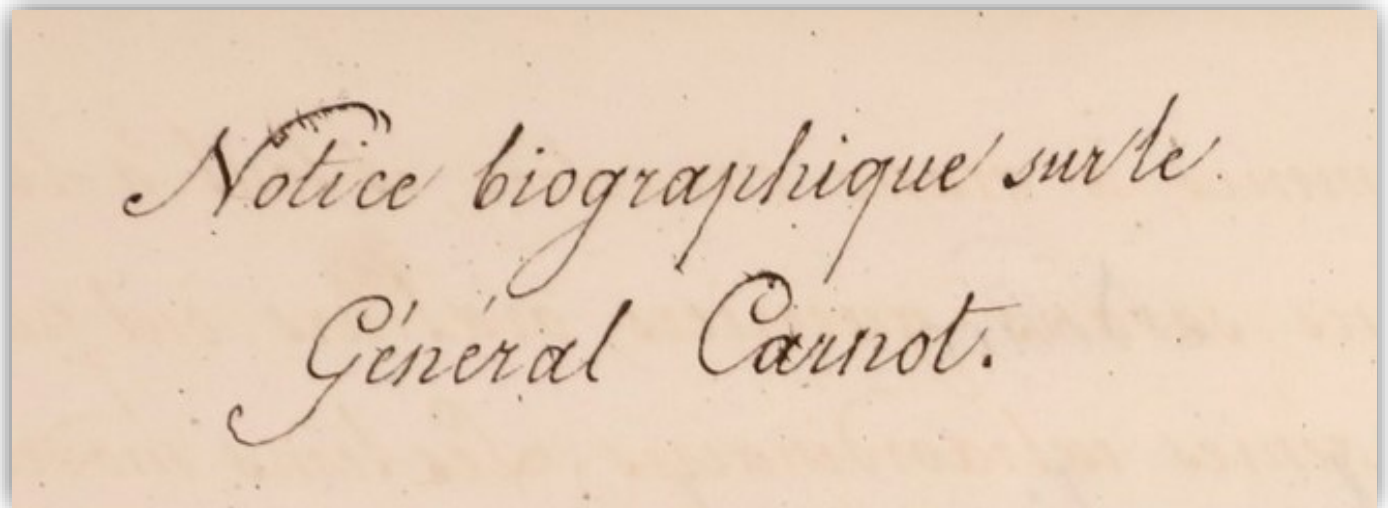 Notice biographique sur le
Général Carnot.